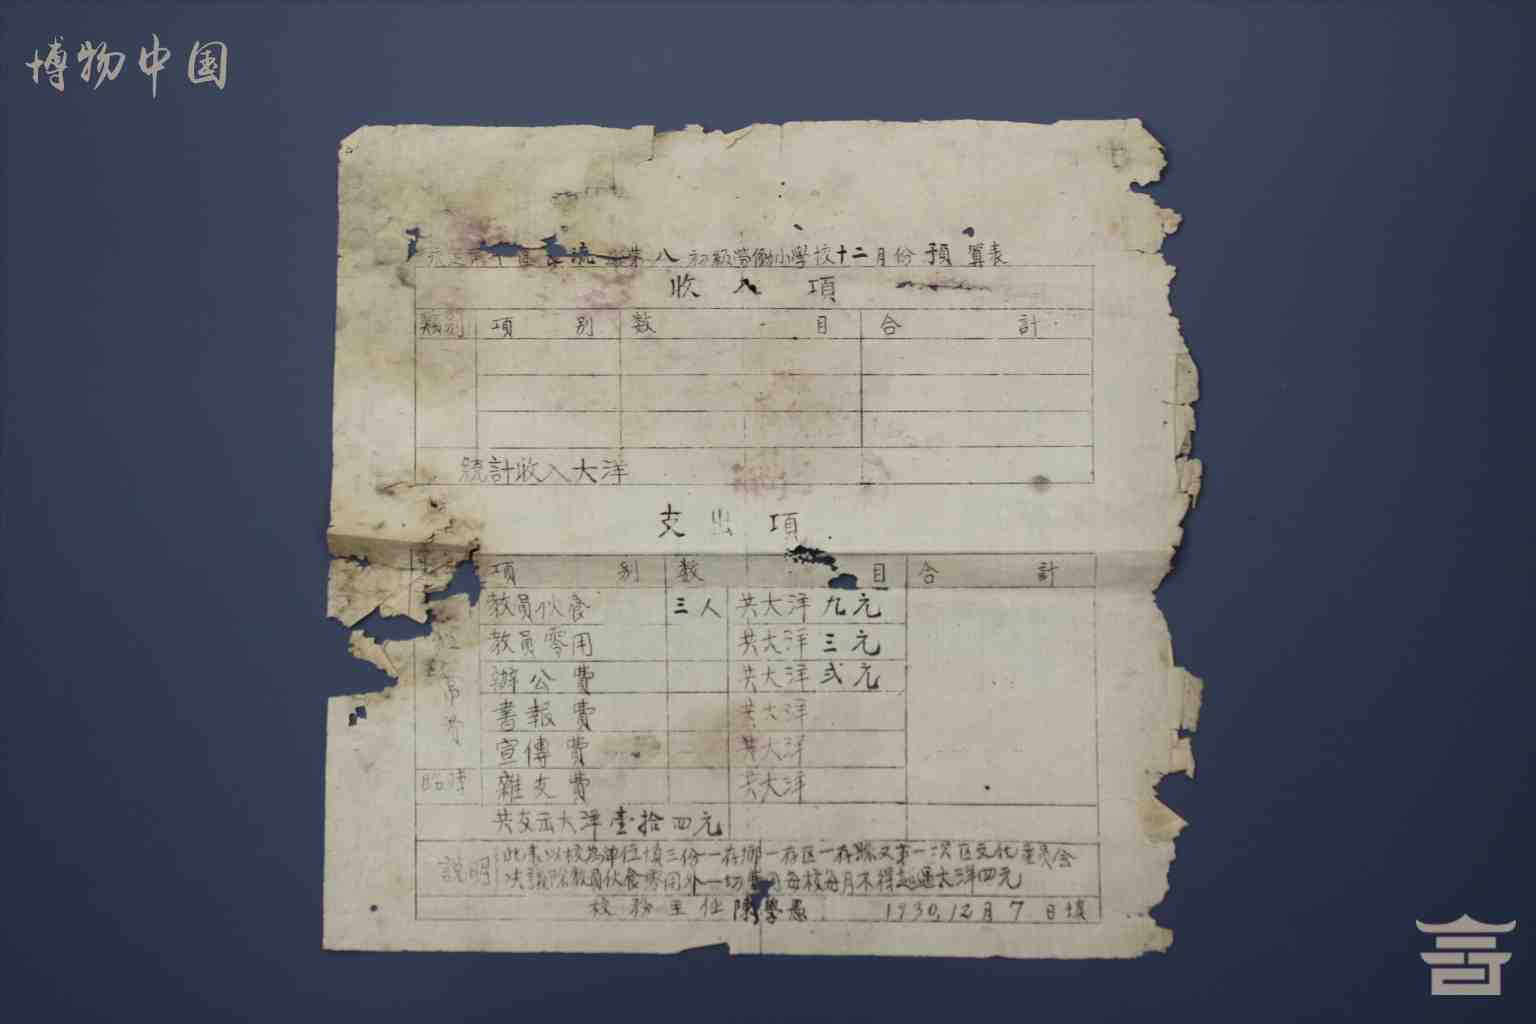 博物中国
流 第八初級勞働小學校十二月份預算表
收入項
類別 項別 数目 合計
統計收入大洋
支出項
項別 数目 合計
教員伙食 三人 共大洋九元
教員零用 共大洋三元
辦公費 共大洋弍元
書報費 共大洋
宣傳費 共大洋
臨時 雜支費 共大洋
常費
共支出大洋壹拾四元
說明 此表以校為單位填三份一存鄉一存区一存縣又第一次区文化委員会
决議除教員伙食零用外一切費用每校每月不得超過大洋四元
校務主任陳學愚 1930,12月7日填